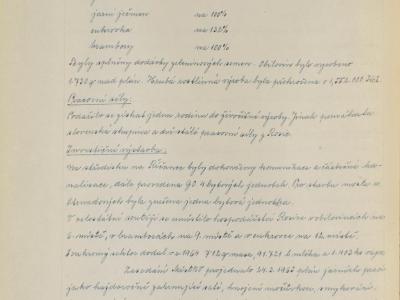 jarní ječmen na 100%
cukrovka na 130%
brambory na 100%
Byly splněny dodávky jetelových semen. Obilovin bylo vyrobeno
1730 q nad plán. Hrubá rostlinná výroba byla překročena o 1,552.000 Kčs.
Pracovní síly:
Podařilo se získat jednu rodinu do živočišné výroby. Jinak pomáhala
slovenská skupina a dvě stálé pracovní síly z
Investiční výstavba:
Na středisku na byly dokončeny komunikace a částečně ka-
nalisace, dále provedena 90 4 bytových jednotek. Pro stavbu mostu v
byla zrušena jedna bytová jednotka.
V celostátní soutěži se umístilo hospodářství v obilovinách na
6. místě, v bramborách na 9. místě a v cukrovce na 12. místě.
Soukromý sektor dodal v r. 1964 712 q masa, 91.721 l mléka a 1.103 ks vajec.
Zasedání projednalo 24.2.1965 plán jarních prací
jako hnojení močůvkou, smykování